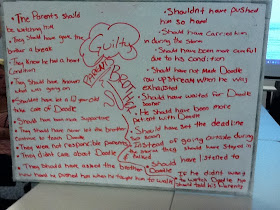 • The Parents should
be watching him
• They should have gave the
brother a break
• They knew he had a heart
Condition
• They should have known
what was going on
• Shouldn't let a 12 year old
take care of Doodle
• Should have been more supportive
• They should have never let the brother
continue to train Doodle
• They were not responsible parents
• They didn't care about Doodle
• They should have asked the brother
how hard he pushed him when he taught him to walk
Guilty
Parents
Brother
• Shouldn't have pushed
him so hard
• Should have carried him
during the storm
• Should have been more careful
due to his condition
• Should not have made Doodle
row upstream when he was
exhausted
• Should have waited for Doodle
sooner
• He should have been more
patient with Doodle
Should have set the deadline
so soon
Instead of going outside during
the storm they should have stayed in
& talked
Should have listened to
Doodle
If he didn't want
to watch Doodle he
should told his Parents